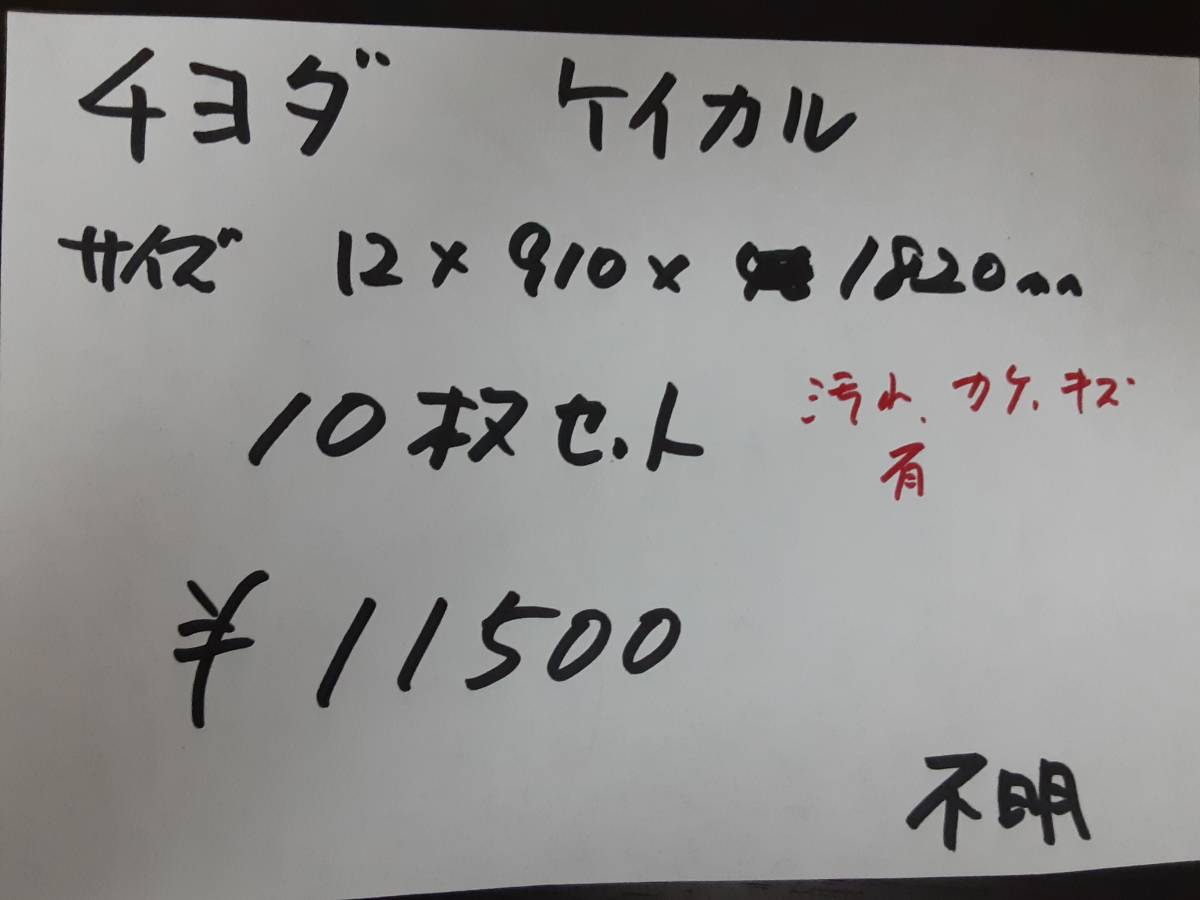 チヨダ ケイカル
サイズ 12×910×1820mm
10枚セット
汚れ、カケ、キズ
有
¥11500
不明